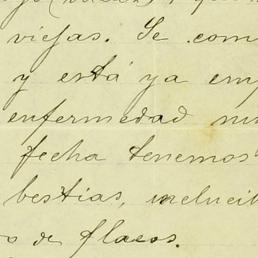 viejas. Se com
y está ya emp
enfermedad
fecha tenemos
bestias, incluci
o de flacos.